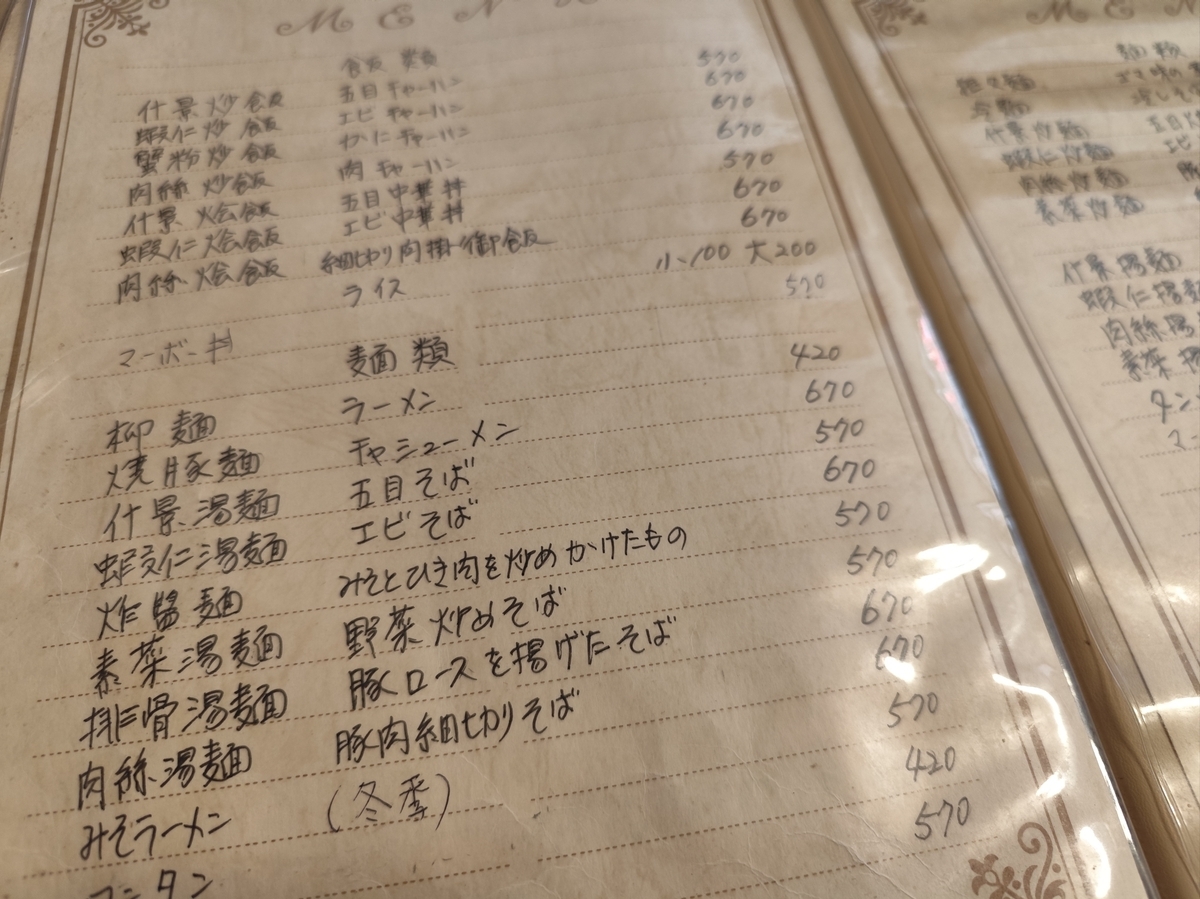 MENU
食飯類
什景炒飯 五目チャーハン 570
蝦仁炒飯 エビチャーハン 670
蟹粉炒飯 かにチャーハン 670
肉絲炒飯 肉チャーハン 670
什景烩飯 五目中華丼 570
蝦仁烩飯 エビ中華丼 670
肉絲烩飯 細切り肉掛御飯 670
ライス 小100 大200
マーボー丼 570
麺類
柳麺 ラーメン 420
焼豚麺 チャシューメン 670
什景湯麺 五目そば 570
蝦仁湯麺 エビそば 670
炸醤麺 みそとひき肉を炒めかけたもの 570
素菜湯麺 野菜炒めそば 570
排骨湯麺 豚ロースを揚げたそば 670
肉絲湯麺 豚肉細切りそば 670
みそラーメン (冬季) 570
ワンタン 420
570
ME
麺類
担々麺 ゴマ味の
冷麺 冷しそ
什景炒麺 五目
蝦仁炒麺 エビ
肉絲炒麺 豚
素菜炒麺
什景湯麺
蝦仁湯麺
肉絲湯
素菜湯
タン